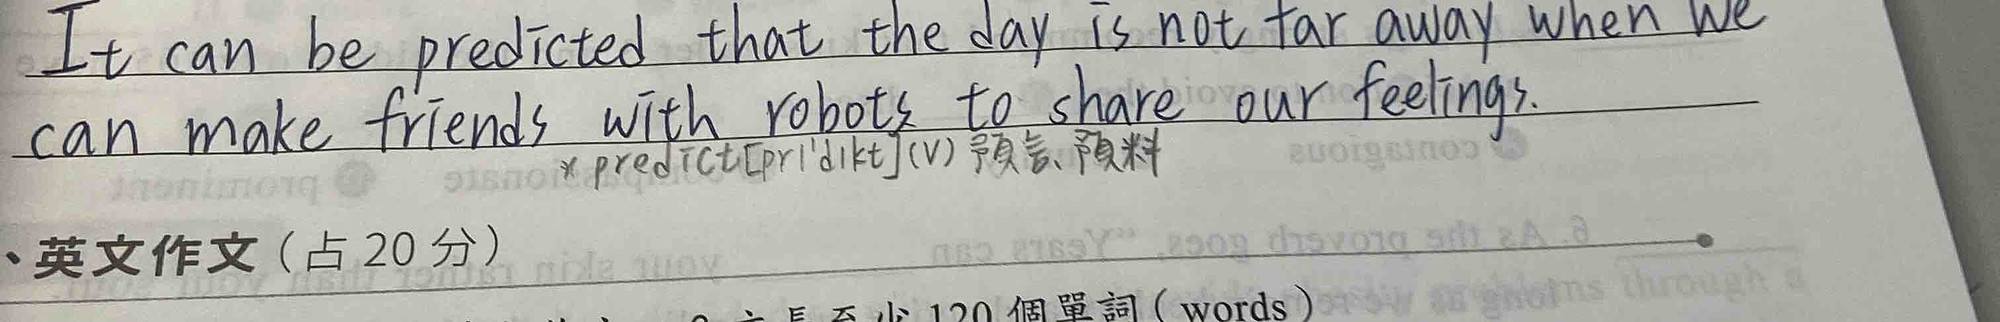 It can be predicted that the day is not far away when we
can make friends with robots to share our feelings.
* predict[prɪ'dɪkt](v) 預言、預料
、英文作文(占 20 分)
文長至少 120 個單詞(words)